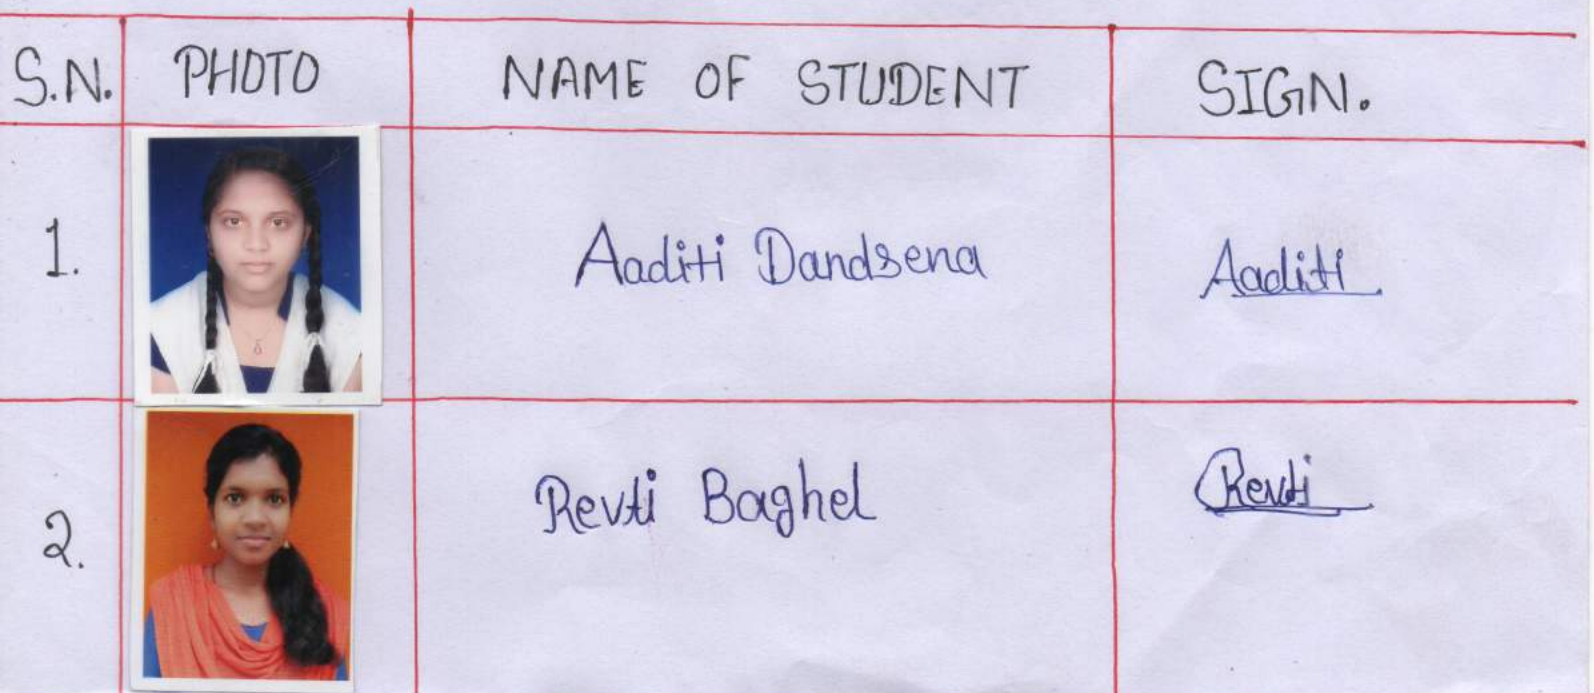 S.N. PHOTO NAME OF STUDENT SIGN.
1. Aaditi Dandsena Aaditi
2. Revti Baghel Revti